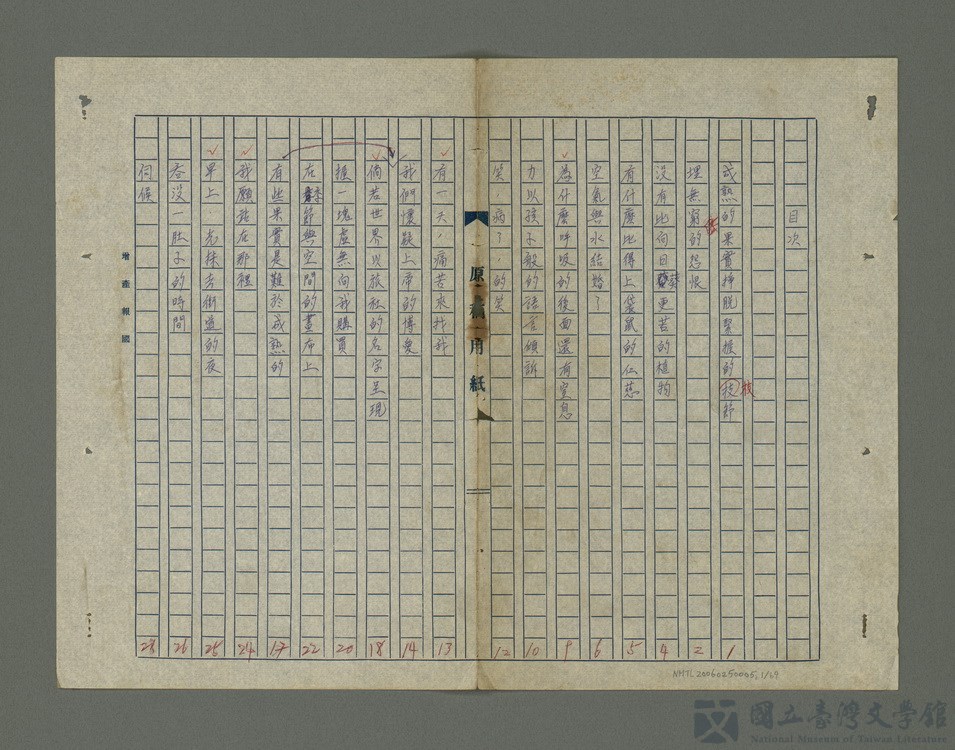 目次
成熟的果實掙脫緊握的枝節
枝
埋無窮的怨恨
沒有比向日葵更苦的植物
有什麼比得上袋鼠的仁慈
空氣與水結婚了
為什麼呼吸的後面還有窒息
力以孩子般的語言傾訴
笑，病了，的笑
一
原稿用紙
有一天，痛苦來找我
我們懷疑上帝的博愛
倘若世界以旅社的名字呈現
租一塊虛無向我購買
在季節與空間的畫布上
有些果實是難於成熟的
我願站在那裡
單上一先抹去街道的夜
吞沒一肚子的時間
伺候
增產報國
1 2 4 5 6 9 10 12 13 14 18 20 22 17 24 25 26 28
NMTL20060250005,1/69
國立臺灣文學館
National Museum of Taiwan Literature